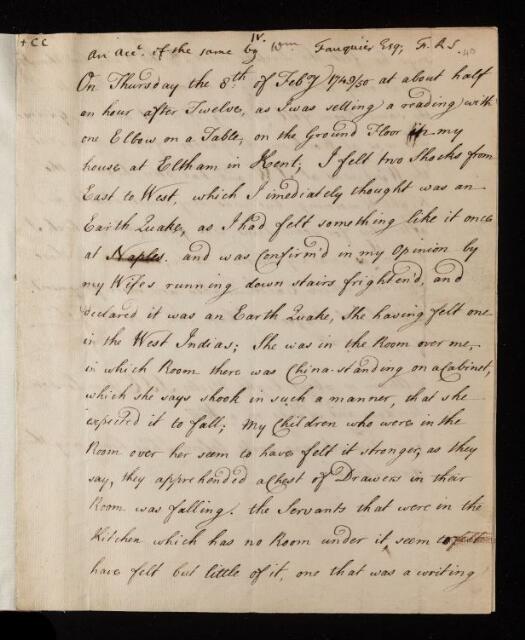 IV.
+ CC
An Acct. of the same by Wm Fauquier Esq; F.R.S. 40
On Thursday the 8th of Feby 1749/50 at about half
an hour after Twelve, as I was setting a reading with
one Elbow on a Table, on the Ground Floor in my
house at Eltham in Kent; I felt two Shocks from
East to West, which I imediately thought was an
Earth Quake, as I had felt something like it once
at Naples. and was Confirm'd in my Opinion by
my Wifes running down stairs frightend, and
declared it was an Earth Quake, She having felt one
in the West Indias; She was in the Room over me,
in which Room there was China standing on a Cabinet,
which she says shook in such a manner, that she
expected it to fall; My Children who were in the
Room over her seem to have felt it stronger, as they
say, they apprehended a Chest of Drawers in their
Room was falling. the Servants that were in the
Kitchen which has no Room under it seem to
have felt but little of it, one that was a writing